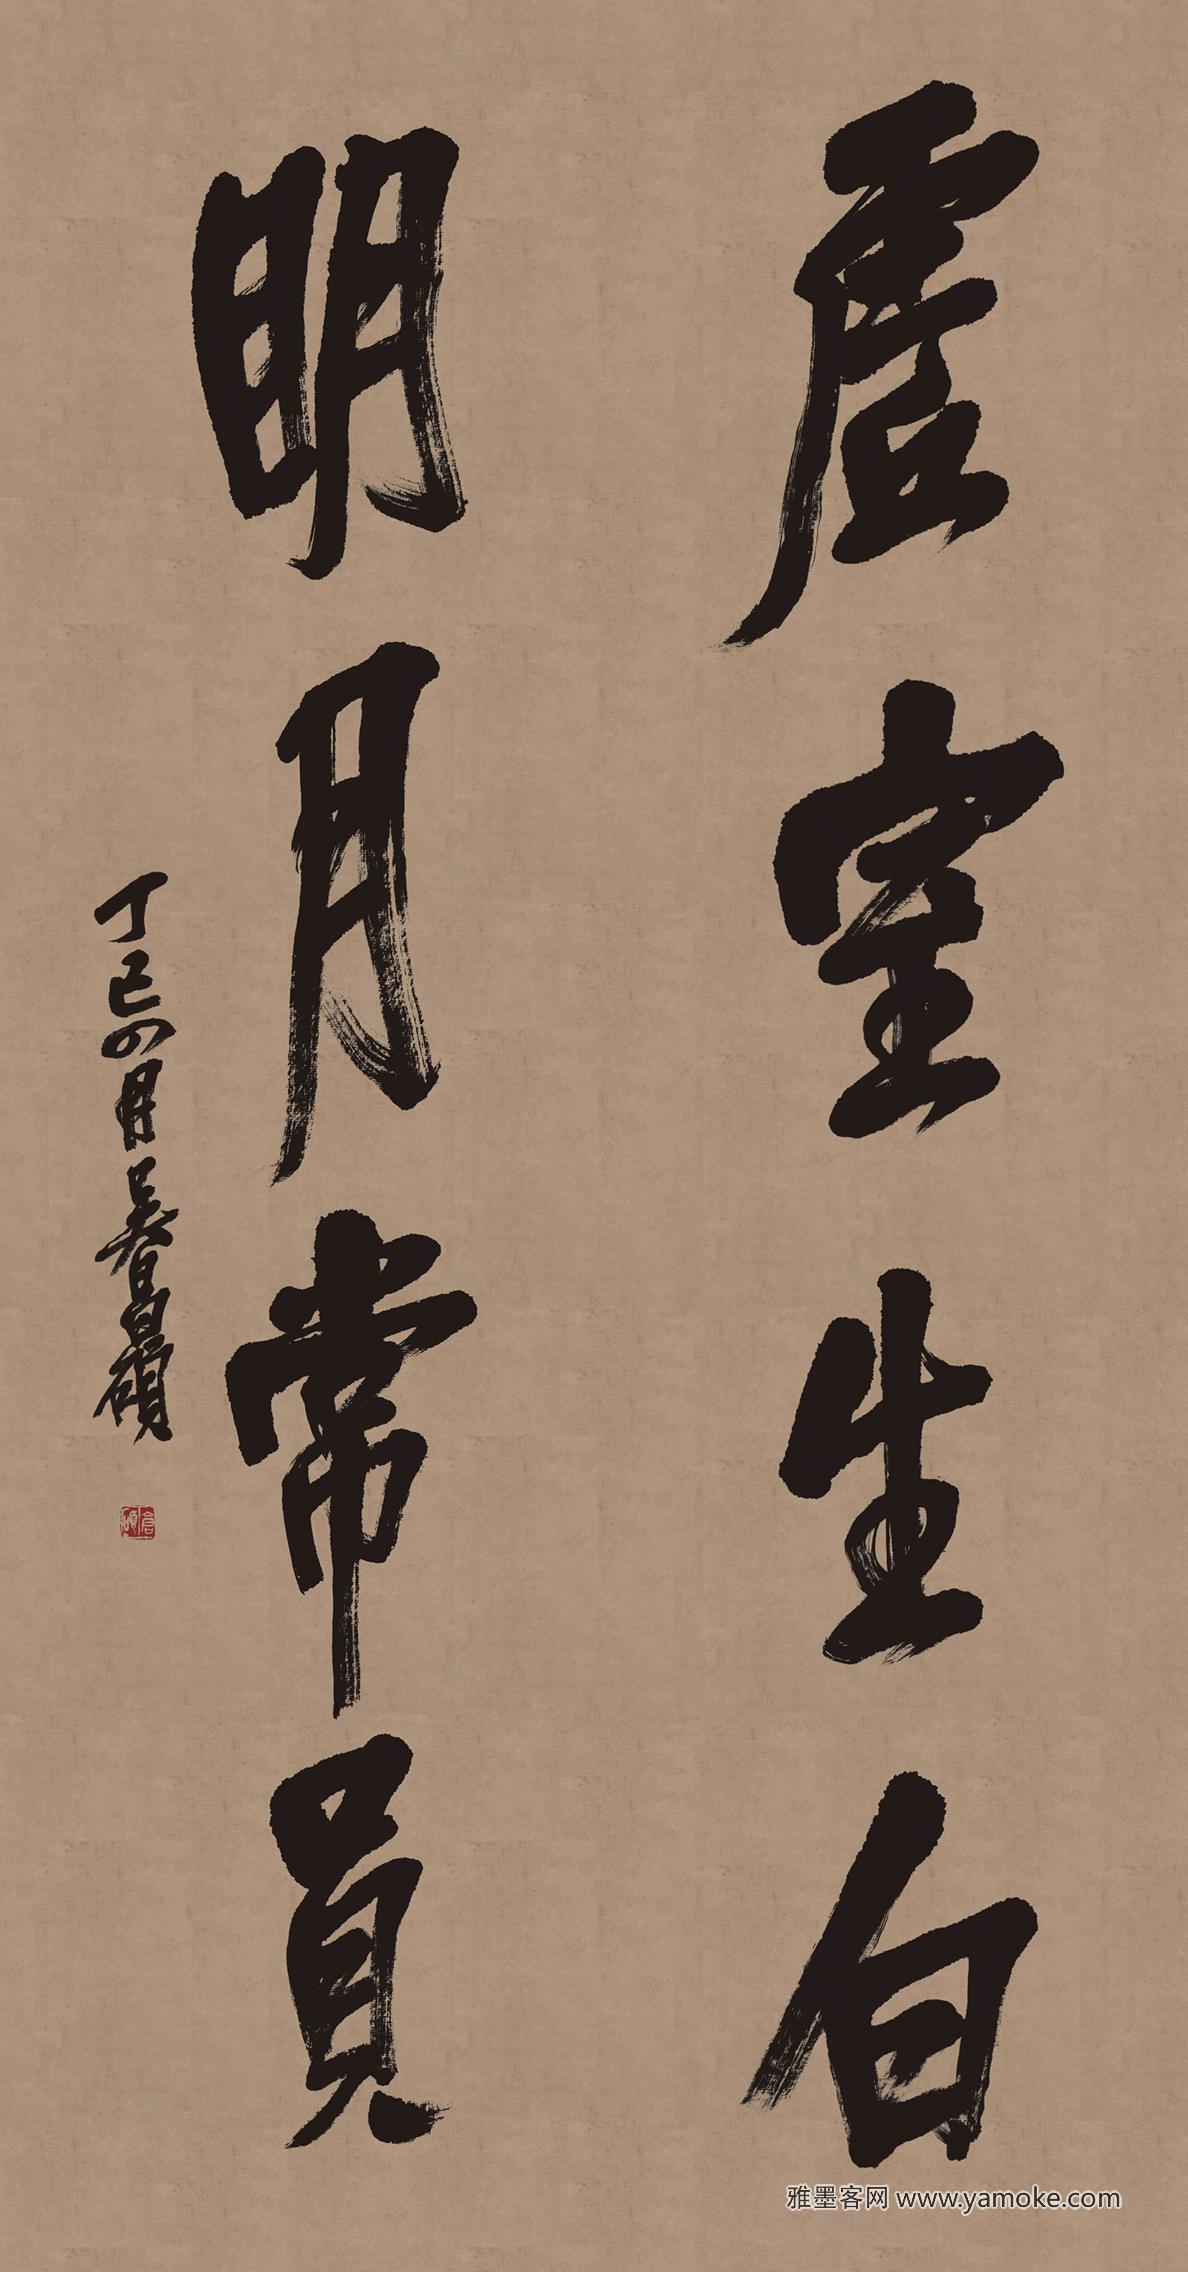 虚室生白
明月常員
丁巳四月吳昌碩
倉碩
雅墨客网 www.yamoke.com